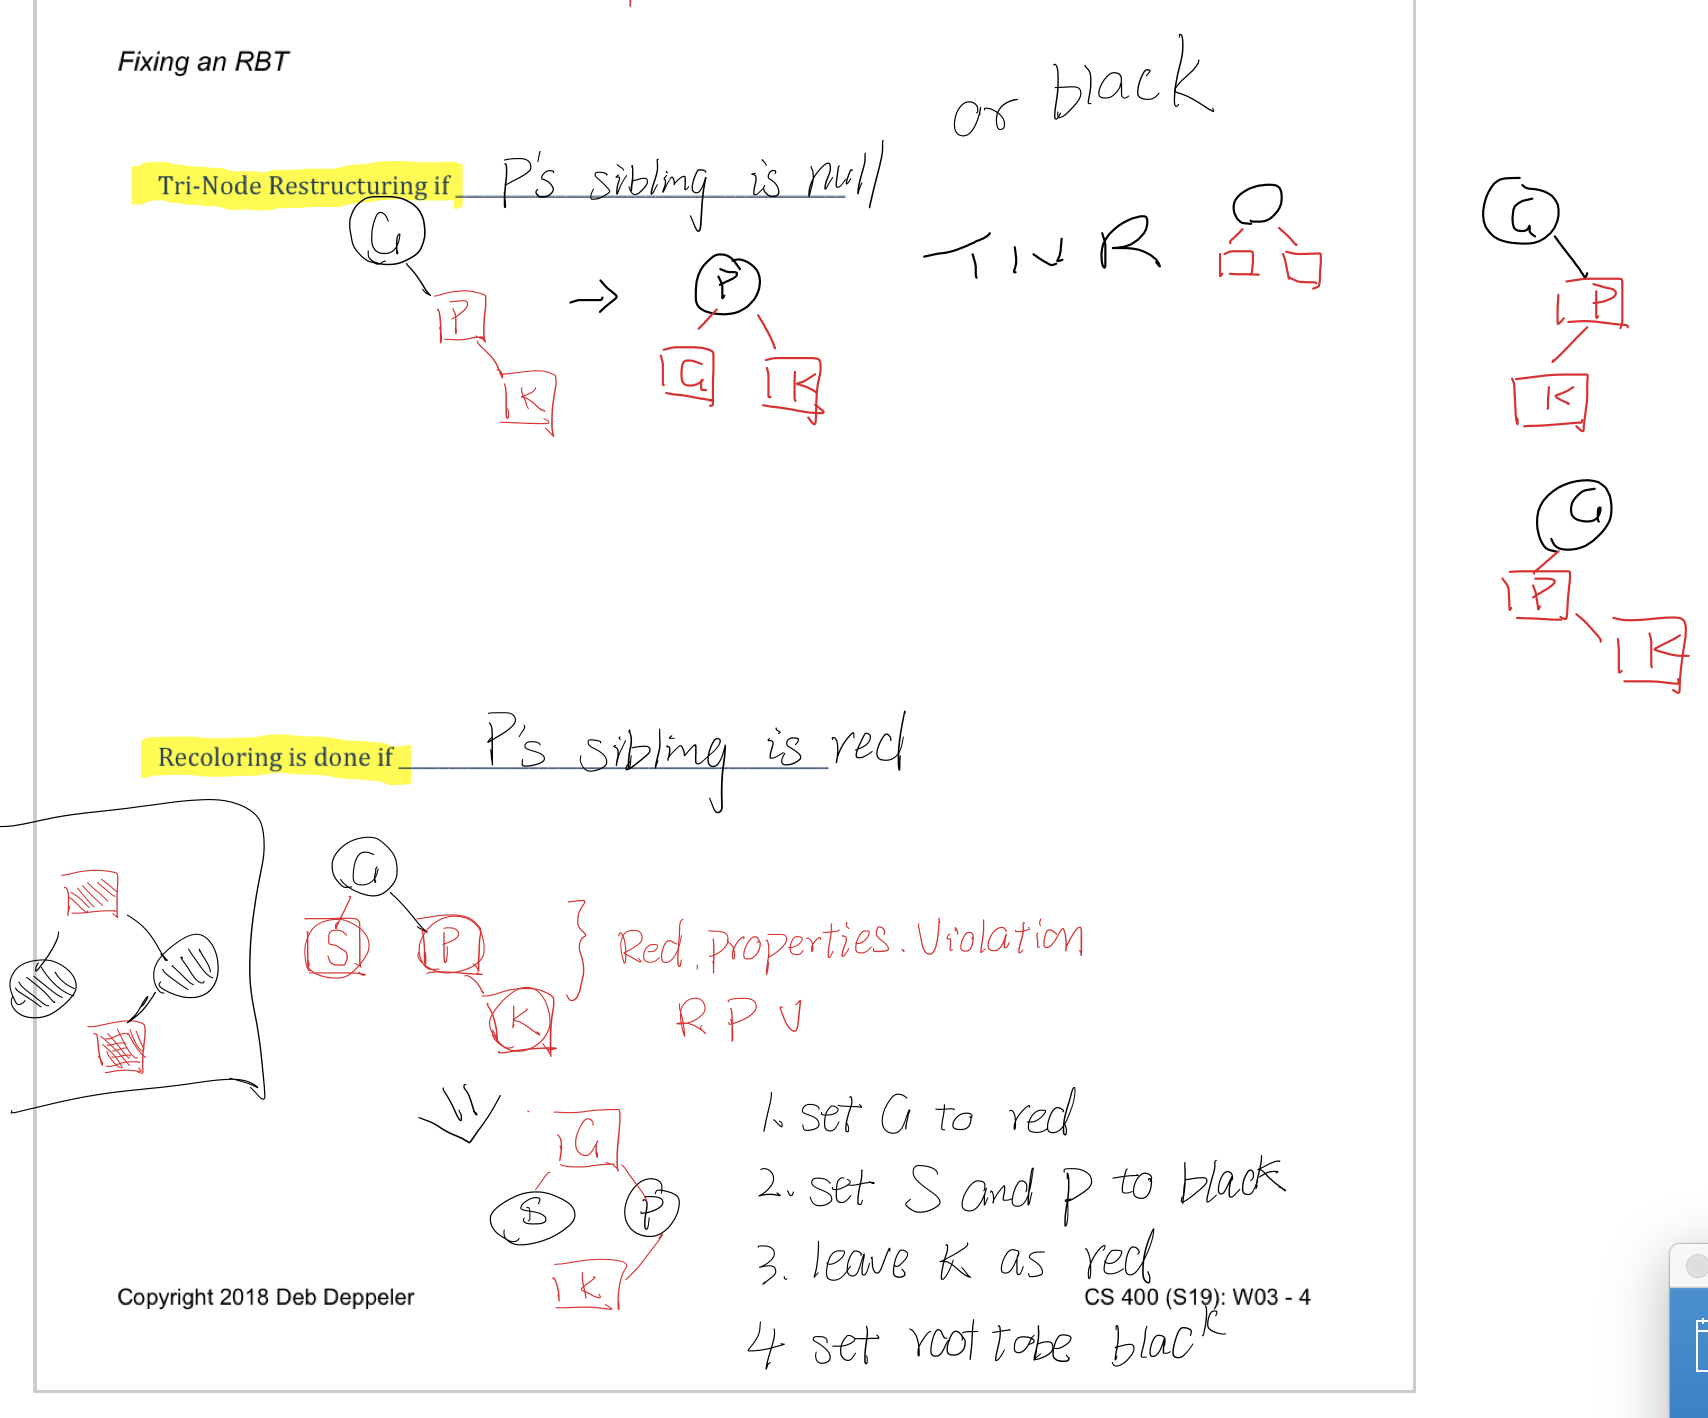 Fixing an RBT
or black
Tri-Node Restructuring if P's sibling is null
G
P
K
P
G
K
TNR
G
P
K
G
P
K
Recoloring is done if P's sibling is red
G
S
P
K
Red. properties. Violation
R P V
G
S
P
K
1. set G to red
2. set S and P to black
3. leave K as red
4 set root to be black
Copyright 2018 Deb Deppeler
CS 400 (S19): W03 - 4